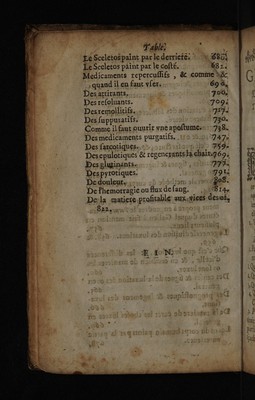 Table.
Le Sceletos paint par le derriere. 680.
Le Sceletos paint par le costé. 682.
Medicamens repercussifs, & comme &
quand il en faut vser. 690.
Des attirants. 700.
Des resoluants. 709.
Des remollitifs. 717.
Des suppuratifs. 730.
Comme il faut ouurir vne apostume. 738.
Des medicamens purgatifs. 747.
Des sarcotiques. 759.
Des epulotiques & regenerants la chair. 769.
Des glutinants. 775.
Des pyrotiques. 791.
De douleur. 808.
De l'hemorragie ou flux de sang. 814.
De la matiere profitable aux vices des os,
822.
FIN.